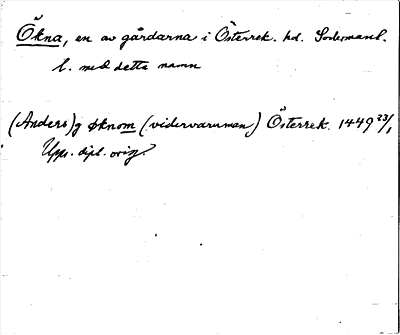 Ökna, en av gårdarna i Österrek. hd. Södermanl.
l. med detta namn
(Anders) j øknom (vidervaruman) Österrek. 1449 23/1
Upps. dipl. orig.